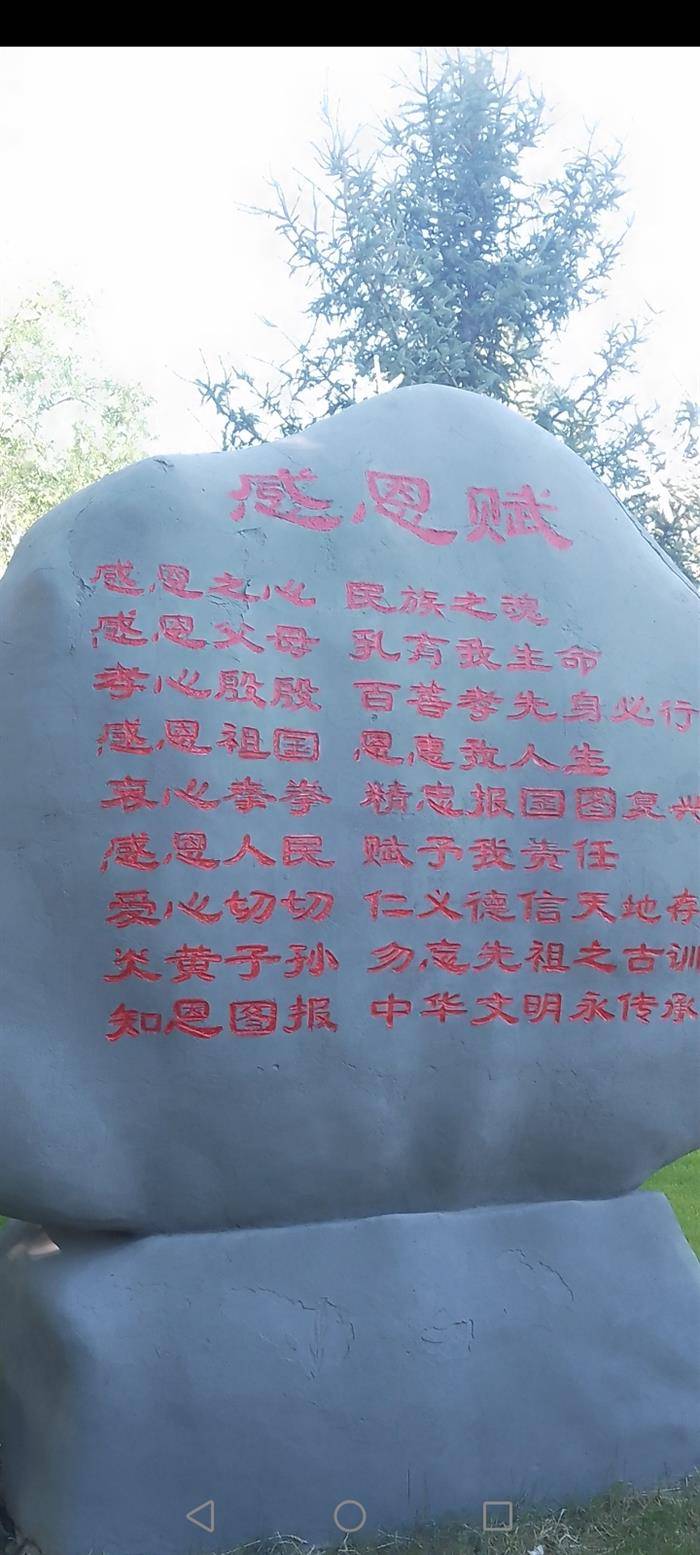 感恩赋
感恩之心 民族之魂
感恩父母 乳育我生命
孝心殷殷 百善孝先身必行
感恩祖国 恩惠我人生
衷心拳拳 精忠报国图复兴
感恩人民 赋予我责任
爱心切切 仁义德信天地存
炎黄子孙 勿忘先祖之古训
知恩图报 中华文明永传承